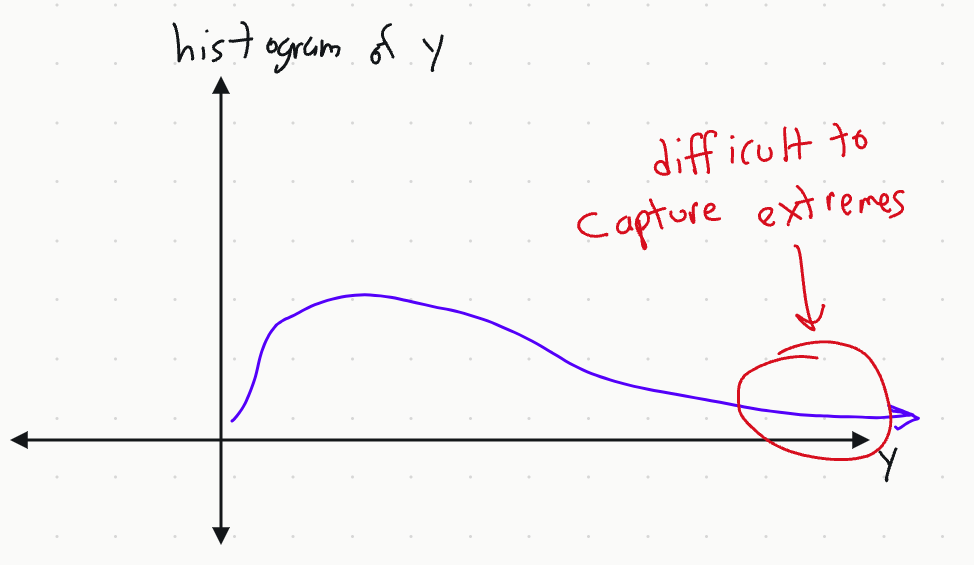 histogram of y
difficult to
capture extremes
y